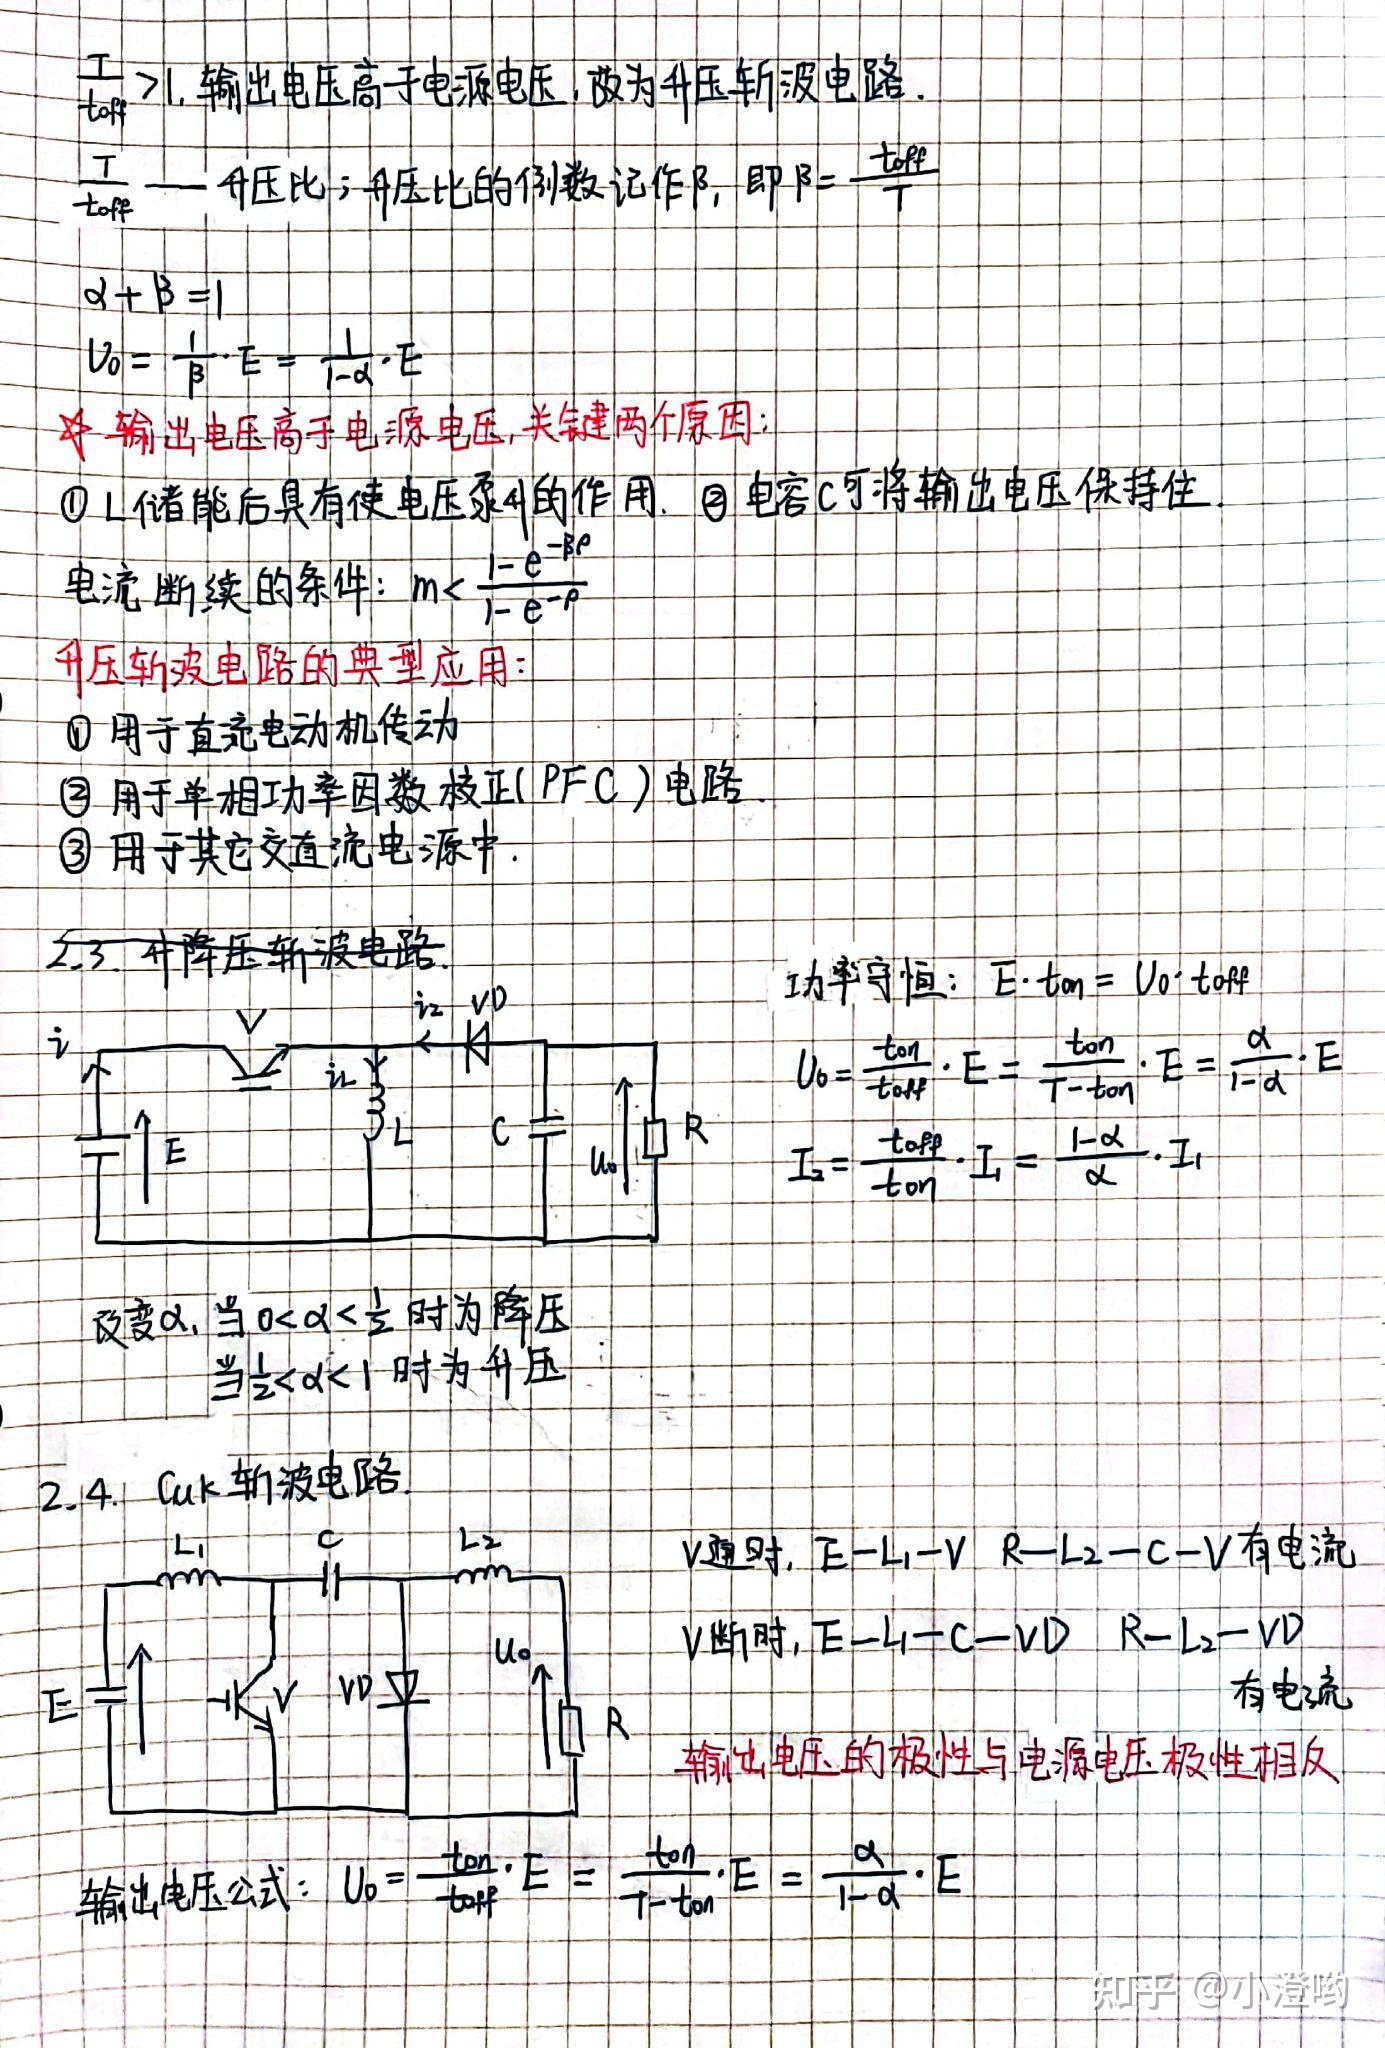 T/toff >1, 输出电压高于电源电压,故为升压斩波电路.
T/toff —— 升压比;升压比的倒数记作β, 即β= toff/T
α+β=1
U0= 1/β·E = 1/(1-α)·E
☆ 输出电压高于电源电压,关键两个原因:
① L储能后具有使电压泵升的作用. ② 电容C可将输出电压保持住.
电流断续的条件: m< (1-e^-βρ)/(1-e^-ρ)
升压斩波电路的典型应用:
① 用于直流电动机传动
② 用于单相功率因数校正(PFC)电路.
③ 用于其它交直流电源中.
2.3. 升降压斩波电路.
i V iL i2 VD
E L C U0 R
功率守恒: E·ton = U0·toff
U0= ton/toff·E = ton/(T-ton)·E = α/(1-α)·E
I2= toff/ton·I1 = (1-α)/α·I1
改变α, 当0<α<1/2 时为降压
当1/2<α<1 时为升压
2.4. Cuk 斩波电路.
L1 C L2
E V VD U0 R
V通时, E-L1-V R-L2-C-V 有电流
V断时, E-L1-C-VD R-L2-VD
有电流
输出电压的极性与电源电压极性相反
输出电压公式: U0= ton/toff·E = ton/(T-ton)·E = α/(1-α)·E
知乎 @小澄哟